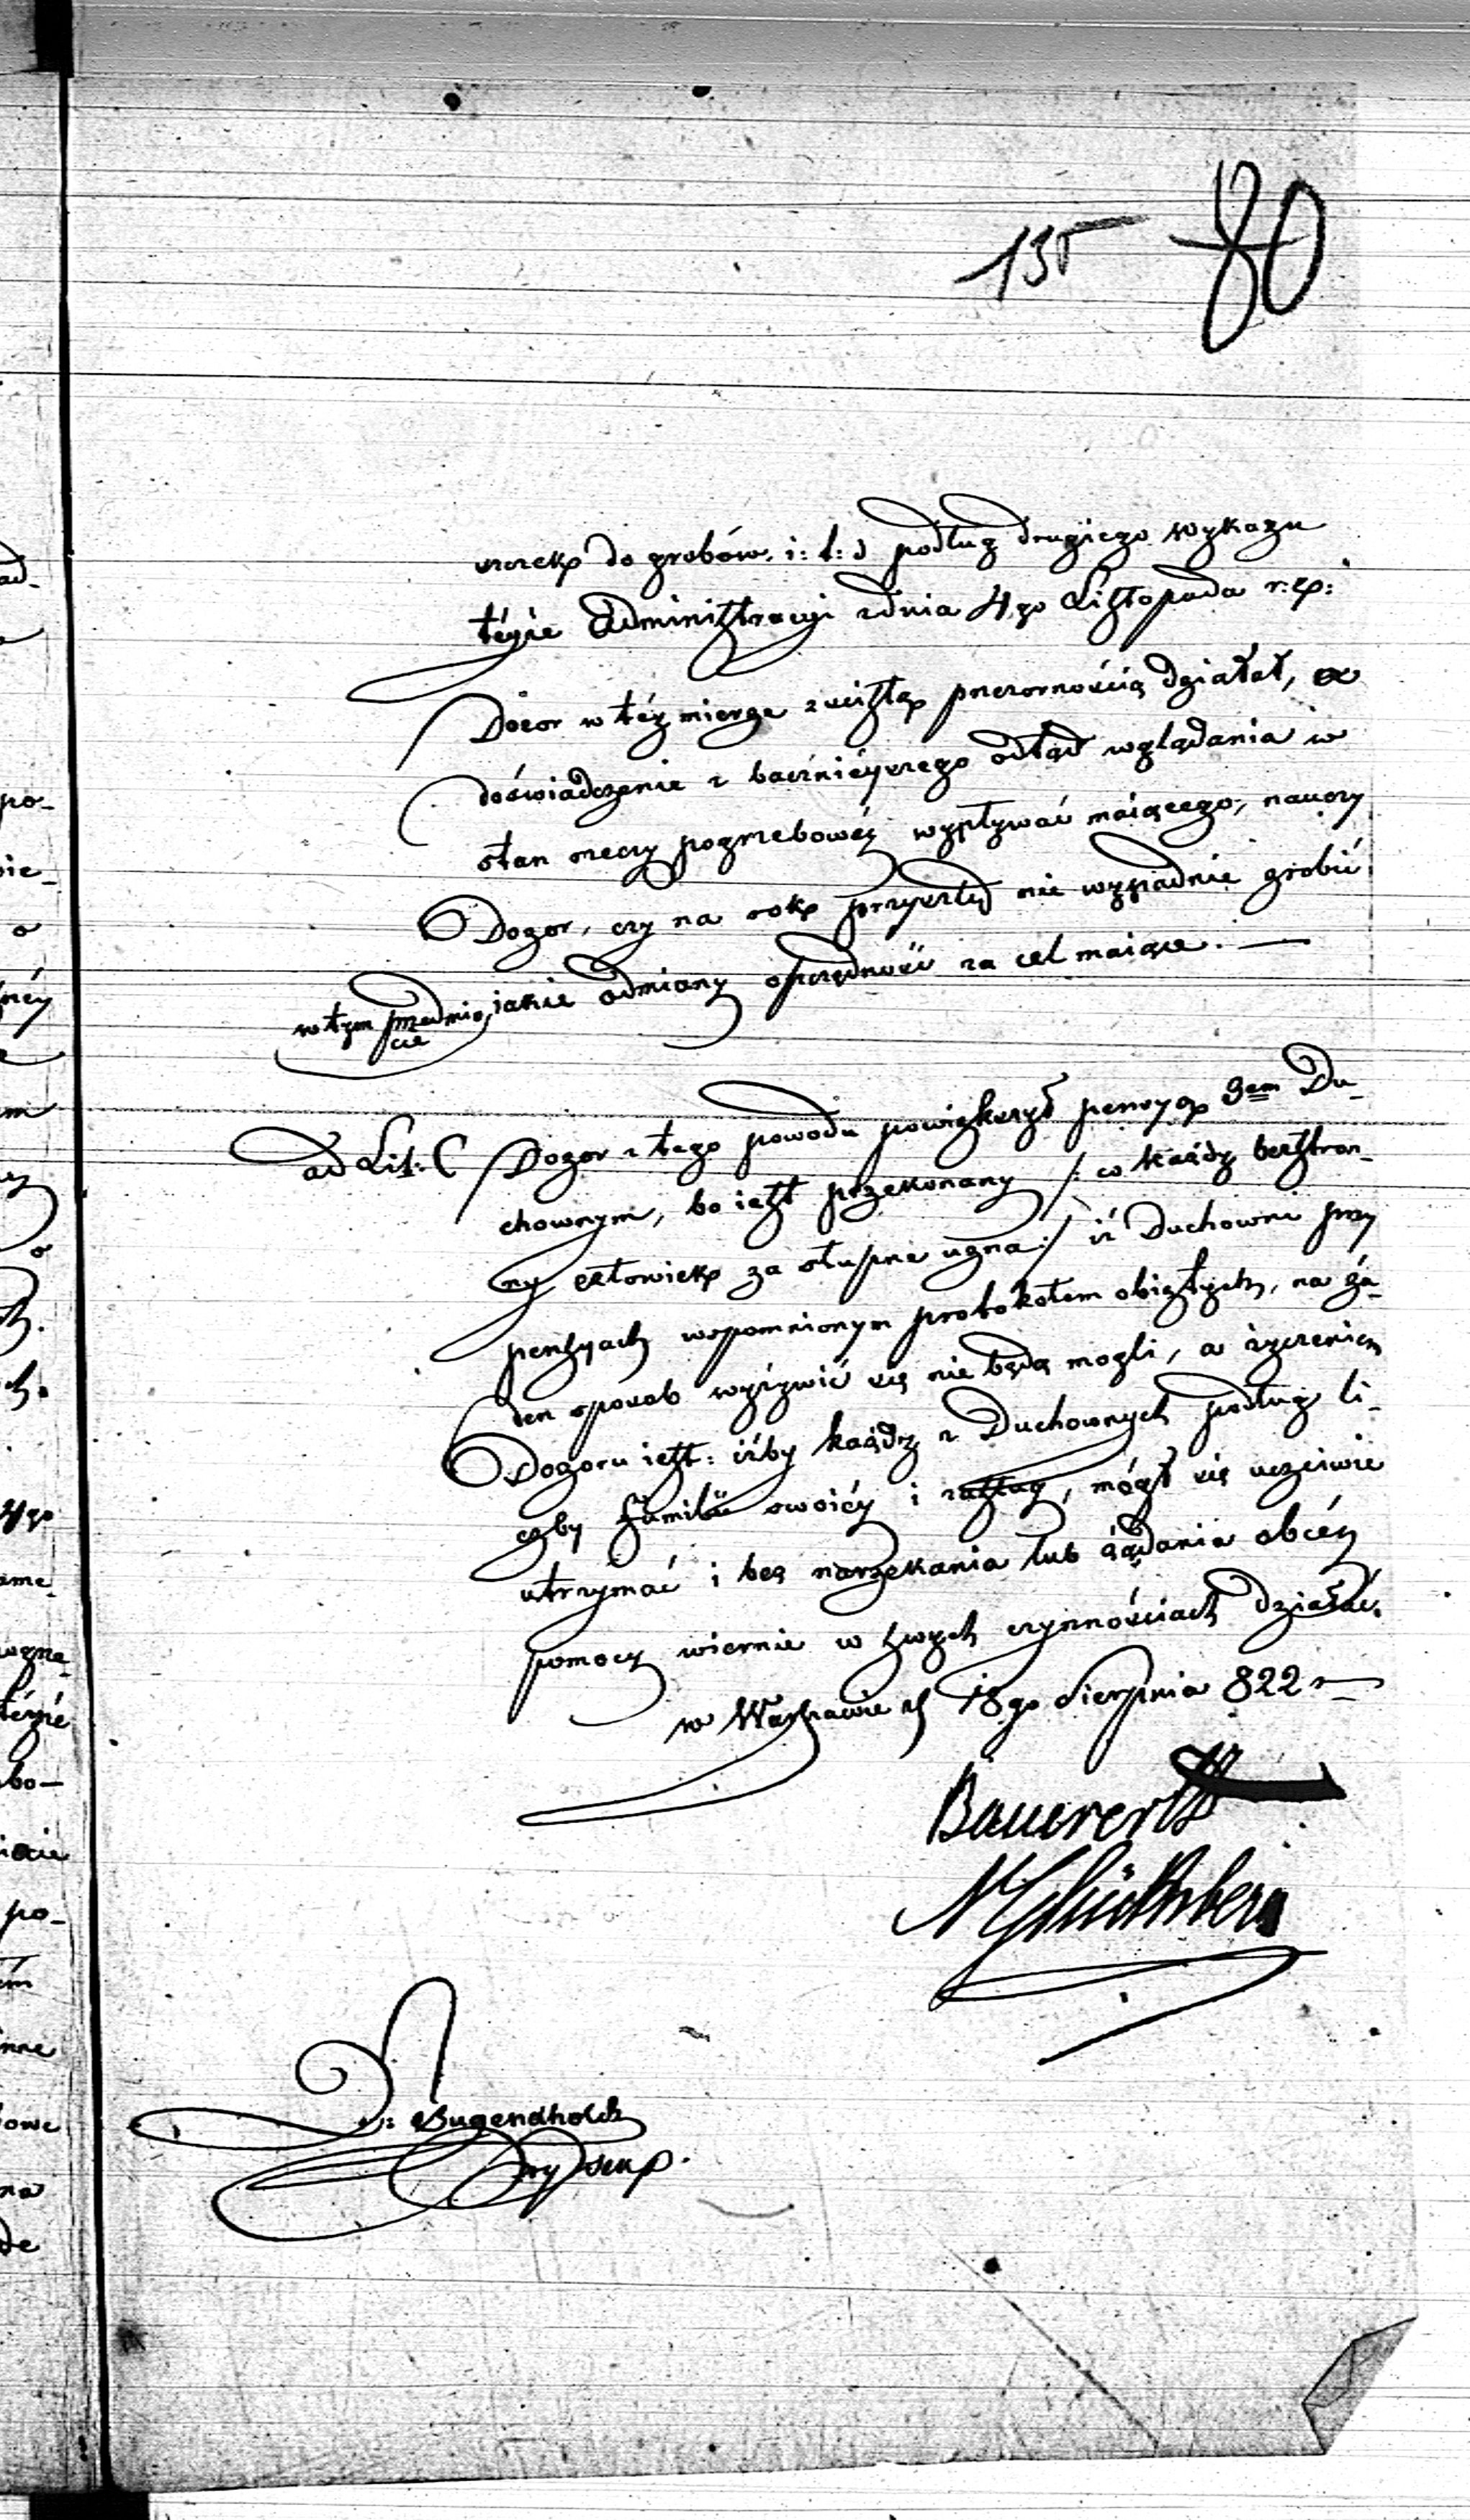 135 80
desek do grobów. i: t: d podług drugiego wykazu
téyże Administracyi z dnia 4go Listopada r: z:
Dozor w téy mierze z ścisłą przezornością działał, a
doświadczenie z bacznieyszego odtąd wglądania w
stan rzeczy pogrzebowéy wypływać maiącego, nauczy
Dozor, czy na rok przyszły nie wypadnie zrobić
w tym przedmio
cie
iakie odmiany oszczędność za cel maiące. —
ad Lit: C Dozor z tego powodu powiększył pensye 3em Du-
chownym, bo iest przekonany /: co każdy bezstron-
ny człowiek za słuszne uzna :/ iż Duchowni przy
pensyach wspomnionym protokołem obiętych, na ża-
den sposob wyżywić się nie będą mogli, a życzeniem
Dozoru iest: iżby każdy z Duchownych podług li-
czby familii swoiéy i zasług, mógł się uczciwie
utrzymać i bez narzekania lub żądania obcéy
pomocy wiernie w swych czynnościach działać.
w Warszawie d 18go Sierpnia 822 r
Bauerertz
M Glücksberg
J: Tugendhold